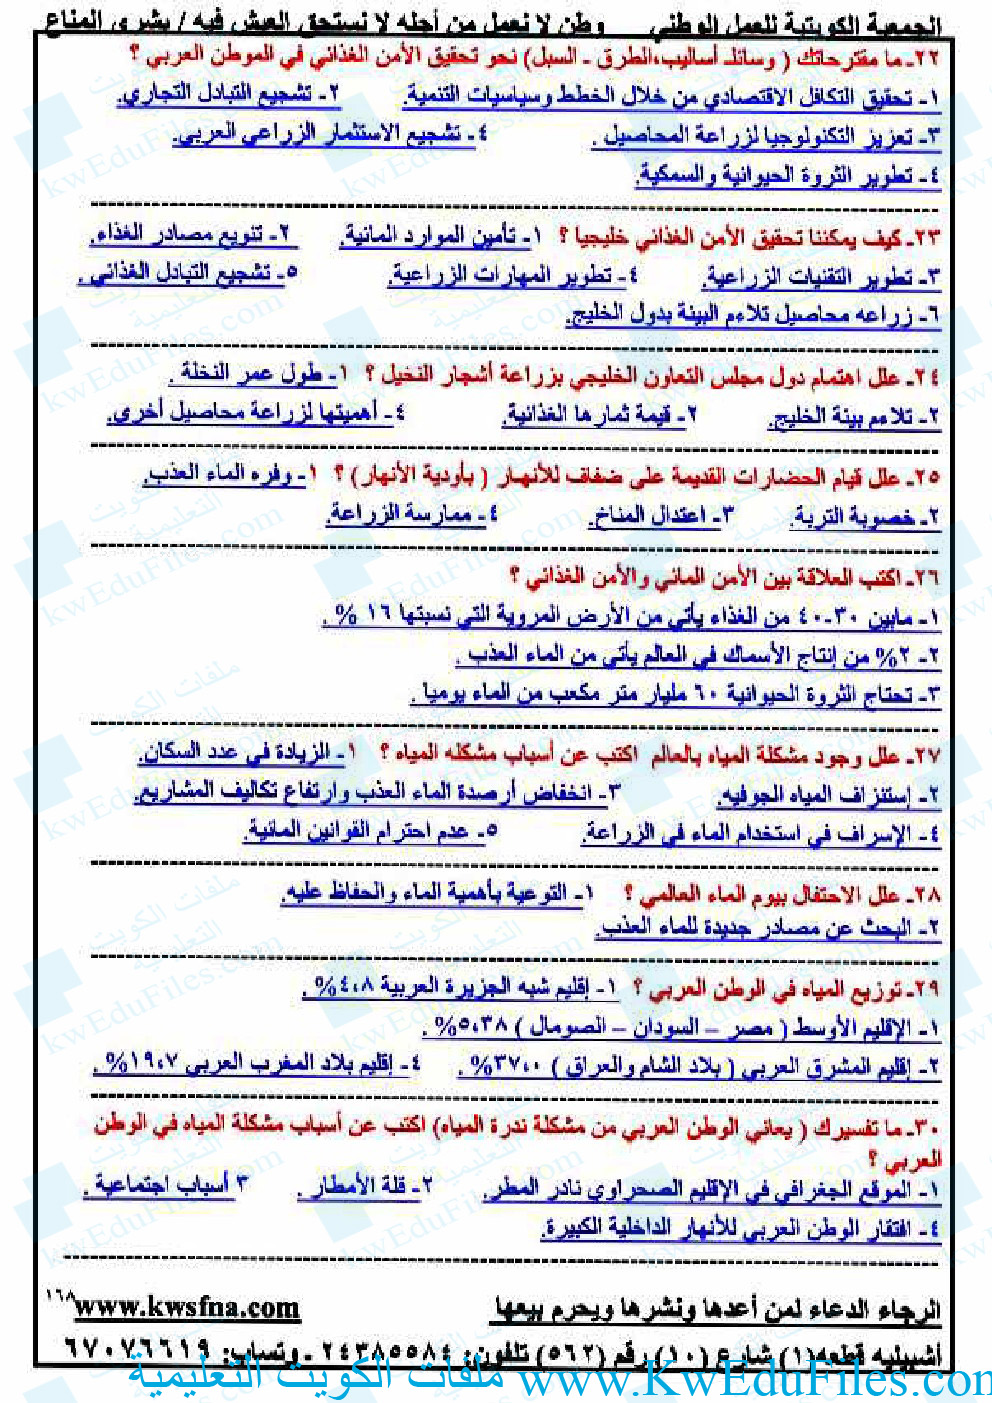 الجمعية الكويتية للعمل الوطني وطن لا نعمل من أجله لا نستحق العيش فيه / بشرى المناع
٢٢ـ ما مقترحاتك ( وسائلـ أساليب،الطرق ـ السبل) نحو تحقيق الأمن الغذائي في الموطن العربي ؟
١- تحقيق التكافل الاقتصادي من خلال الخطط وسياسيات التنمية. ٢- تشجيع التبادل التجاري.
٣- تعزيز التكنولوجيا لزراعة المحاصيل . ٤- تشجيع الاستثمار الزراعي العربي.
٤- تطوير الثروة الحيوانية والسمكية.
٢٣ـ كيف يمكننا تحقيق الأمن الغذائي خليجيا ؟ ١- تأمين الموارد المائية. ٢- تنويع مصادر الغذاء.
٣- تطوير التقنيات الزراعية. ٤- تطوير المهارات الزراعية. ٥- تشجيع التبادل الغذائي .
٦- زراعه محاصيل تلاءم البيئة بدول الخليج.
٢٤ـ علل اهتمام دول مجلس التعاون الخليجي بزراعة أشجار النخيل ؟ ١- طول عمر النخلة .
٢- تلاءم بيئة الخليج. ٢- قيمة ثمارها الغذائية. ٤- أهميتها لزراعة محاصيل أخرى.
٢٥ـ علل قيام الحضارات القديمة على ضفاف للأنهار ( بأودية الأنهار) ؟ ١- وفره الماء العذب.
٢- خصوبة التربة. ٣- اعتدال المناخ. ٤- ممارسة الزراعة.
٢٦ـ اكتب العلاقة بين الأمن المائي والأمن الغذائي ؟
١- مابين ٣٠-٤٠ من الغذاء يأتي من الأرض المروية التي نسبتها ١٦ % .
٢- ٢% من إنتاج الأسماك في العالم يأتي من الماء العذب .
٣- تحتاج الثروة الحيوانية ٦٠ مليار متر مكعب من الماء يوميا .
٢٧ـ علل وجود مشكلة المياه بالعالم اكتب عن أسباب مشكله المياه ؟ ١- الزيادة في عدد السكان.
٢- إستنزاف المياه الجوفيه. ٣- انخفاض أرصدة الماء العذب وارتفاع تكاليف المشاريع.
٤- الإسراف في استخدام الماء في الزراعة. ٥- عدم احترام القوانين المائية.
٢٨ـ علل الاحتفال بيوم الماء العالمي ؟ ١- التوعية بأهمية الماء والحفاظ عليه.
٢- البحث عن مصادر جديدة للماء العذب.
٢٩ـ توزيع المياه في الوطن العربي ؟ ١- إقليم شبه الجزيرة العربية ٤،٨%.
١- الإقليم الأوسط ( مصر – السودان – الصومال ) ٥،٣٨% .
٢- إقليم المشرق العربي ( بلاد الشام والعراق ) ٣٧،٠% . ٤- إقليم بلاد المغرب العربي ١٩،٧% .
٣٠ـ ما تفسيرك ( يعاني الوطن العربي من مشكلة ندرة المياه) اكتب عن أسباب مشكلة المياه في الوطن
العربي ؟
١- الموقع الجغرافي في الإقليم الصحراوي نادر المطر. ٢- قلة الأمطار . ٣ أسباب اجتماعية .
٤- افتقار الوطن العربي للأنهار الداخلية الكبيرة.
الرجاء الدعاء لمن أعدها ونشرها ويحرم بيعها www.kwsfna.com ١٦٨
أشبيليه قطعه(١) شارع (١٠) رقم (٥٦٢) تلفون: ٢٤٣٨٥٥٨٤ ـ وتساب: ٦٧٠٧٦٦١٩
www.KwEduFiles.com ملفات الكويت التعليمية